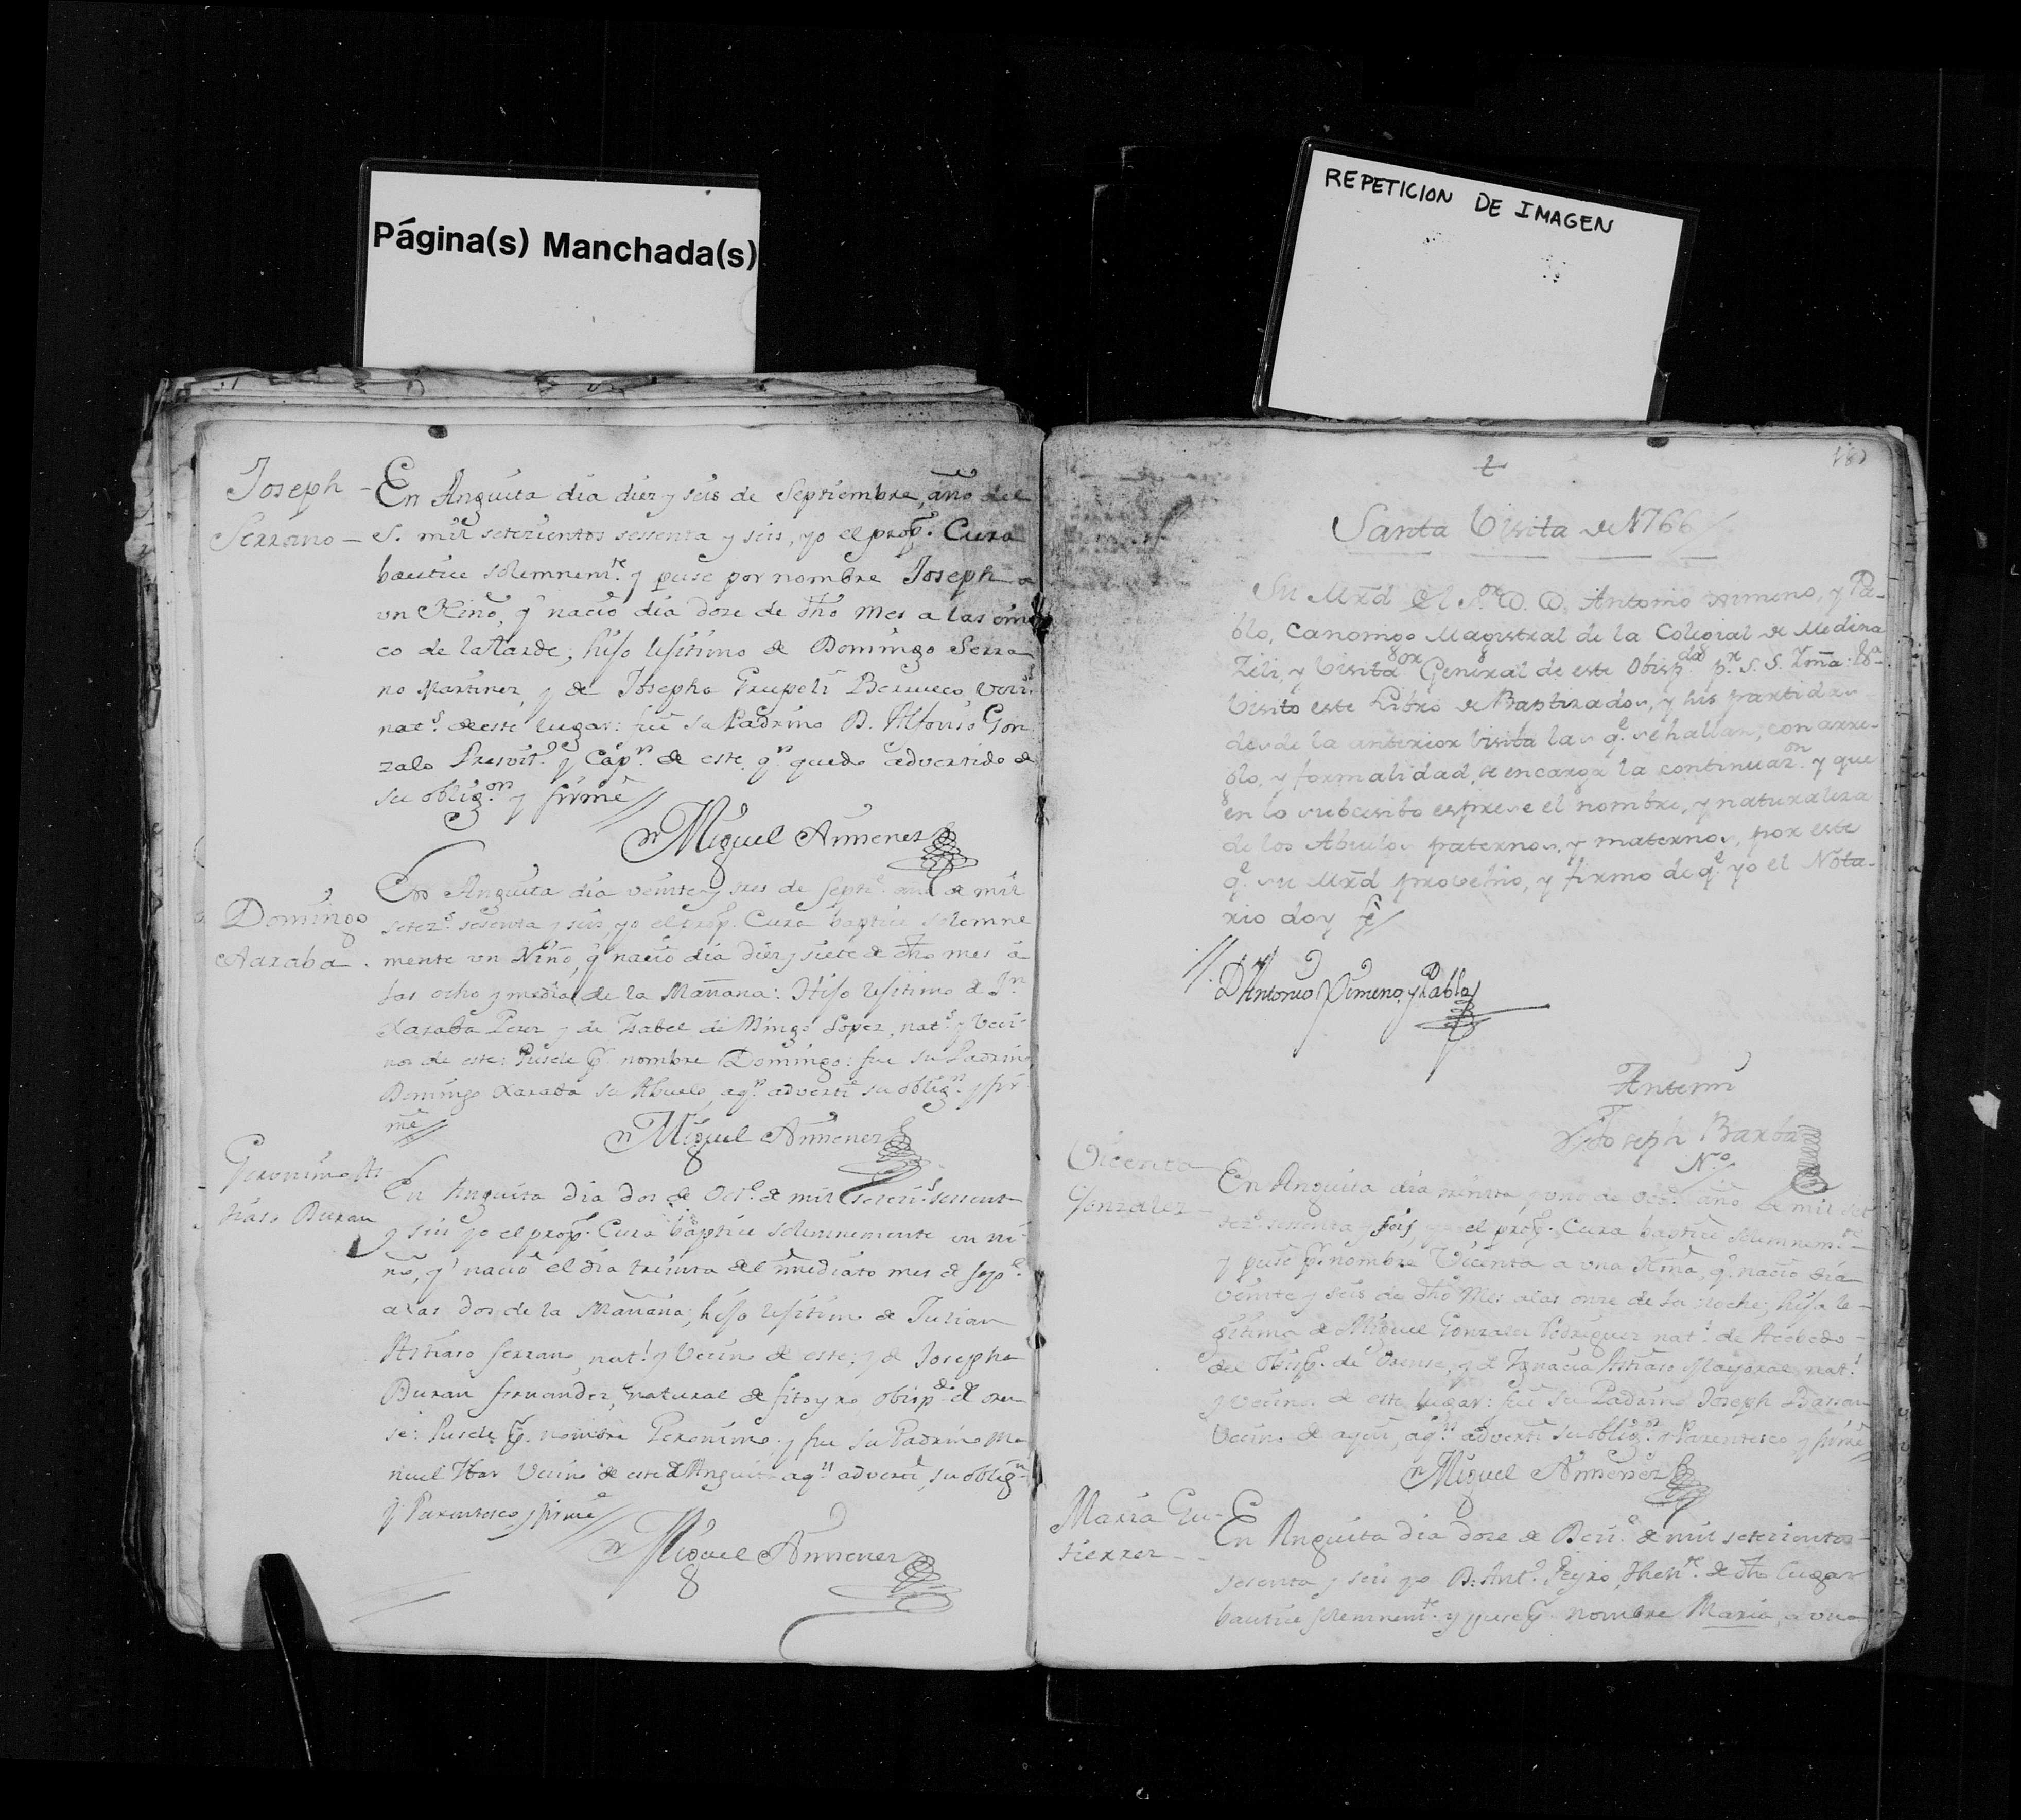 Página(s) Manchada(s)
REPETICION DE IMAGEN
Joseph
Serrano
En Anguita dia diez y seis de Septiembre, año del
S. mil setezientos sessenta y seis, yo el prop.º Cura
bautice solemnem.te y puse por nombre Joseph a
un Niño, q.e nacio dia doze de dho mes a las cin
co de la tarde; hijo lejitimo de Domingo Serra
no Martinez, y de Josepha Berrueco, vezi.s
nat.s de este lugar: fue su Padrino D. Alfonso Gon
zalo Presvit.º y Cap.n de este, q.n quedo advertido de
su oblig.on y firme
Miguel Ximenez
Domingo
Xaraba
En Anguita dia veinte y tres de Septe. año de mil
setez.s sesenta y seis, yo el prop.º Cura baptice solemne
mente un Niño, q.e nacio dia diez y siete de dho mes a
las ocho y media de la Mañana: Hijo lejitimo de J.n
Xaraba Perez y de Isabel de Mingo Lopez, nat.s y Veci
nos de este: Pusele p.r nombre Domingo: fue su Padrino
Domingo Xaraba su Abuelo, a q.n adverti su oblig.n y fir
me
Miguel Ximenez
Geronimo
Duran
En Anguita dia dos de Oct.e de mil setezi.s sessenta
y seis yo el prop.º Cura baptice solemnemente un ni
ño, q.e nacio el dia treinta del inmediato mes de Sep.e
a las dos de la Mañana; hijo lejitimo de Julian
Serrano, nat.l y Vecino de este; y de Josepha
Duran Fernandez, natural de obisp.do de Oren
se: Pusele p.r nombre Geronimo; y fue su Padrino Ma
nuel Vecino de este de Anguita a q.n adverti su oblig.n
y Parentesco y firme
Miguel Ximenez
Santa Visita de 1766
Su Mrd el S.r D. D. Antonio Ximeno, y Pa-
blo, Canonigo Magistral de la Colegial de Medina
Zeli, y Visitador General de este Obispdo p.r S. S. Yma:
Visito este Libro de Baptizados, y sus partidas
desde la anterior Visita las q.e se hallan, con arre-
glo, y formalidad, se encarga la continuaz.on y que
en lo subcesibo esprese el nombre, y naturaleza
de los Abuelos paternos, y maternos, por este
q.e su Mrd provehio, y firmo de q.e yo el Nota-
rio doy fe
D.r Antonio Ximeno, y Pablo
Antemi
Joseph Barba
N.o
Vicenta
Gonzalez
En Anguita dia treinta y uno de Oct.e año de mil set
tez.s sessenta y seis, yo el prop.º Cura baptice solemnem.te
y puse p.r nombre Vicenta a una Niña, q.e nacio dia
veinte y seis de dho Mes a las onze de la noche; hija le-
gitima de Miguel Gonzalez Rodriguez nat.l de Acebedo
del Obisp.º de Orense, y de Ignacia Mayoral nat.l
y Vecin.s de este lugar: fue su Padrino Joseph
Vecino de aqui, a q.n adverti su oblig.on y Parentesco y firme
Miguel Ximenez
Maria Gu-
tierrez
En Anguita dia doze de mil setezientos
sesenta y seis yo D. Ant.º de dho Lugar
bautice solemnem.te y puse p.r nombre Maria, a una